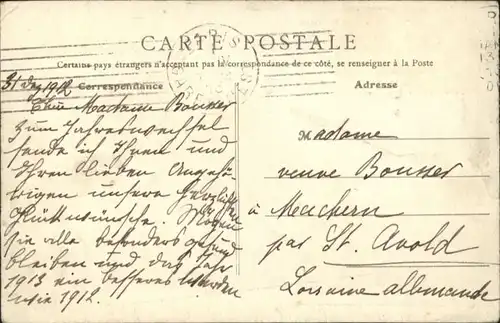 CARTE POSTALE
Certains pays étrangers n'acceptant pas la correspondance de ce côté, se renseigner à la Poste
Correspondance
Adresse
31 Dez 1912
Chère Madame Bousser
Zum Jahreswechsel
sende ich Ihnen und
Ihren lieben Angehö-
rigen unsere herzlichsten
Glückwünsche. Mögen
sie alle besonders gesund
bleiben und das Jahr
1913 ein besseres werden
wie 1912.
Madame
veuve Bousser
à Machern
par St. Avold
Lorraine allemande